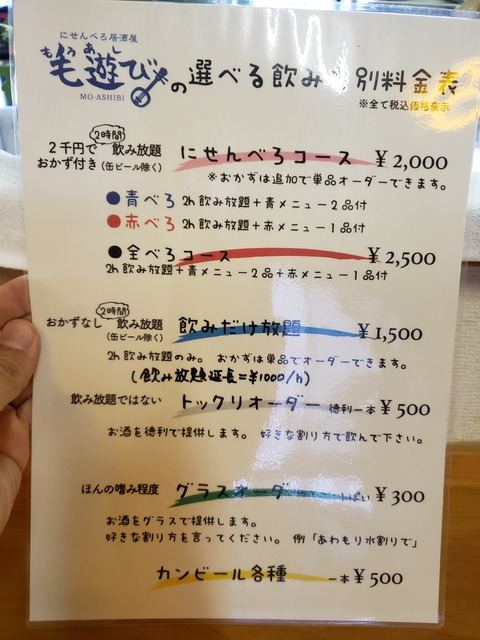 にせんべろ居酒屋
もうあしび
毛遊び
MO-ASHIBI
の選べる飲み 別料金表
※全て税込価格表示
2時間
2千円で 飲み放題
おかず付き(缶ビール除く)
にせんべろコース ¥2,000
※おかずは追加で単品オーダーできます。
●青べろ 2h飲み放題+青メニュー2品付
●赤べろ 2h飲み放題+赤メニュー1品付
●全べろコース ¥2,500
2h飲み放題+青メニュー2品+赤メニュー1品付
2時間
おかずなし 飲み放題
(缶ビール除く)
飲みだけ放題 ¥1,500
2h飲み放題のみ。 おかずは単品でオーダーできます。
(飲み放題延長=¥1000/h)
飲み放題ではない トックリオーダー 徳利一本 ¥500
お酒を徳利で提供します。 好きな割り方で飲んで下さい。
ほんの嗜み程度 グラスオーダー ¥300
お酒をグラスで提供します。
好きな割り方を言ってください。 例「あわもり水割りで」
カンビール各種 一本 ¥500